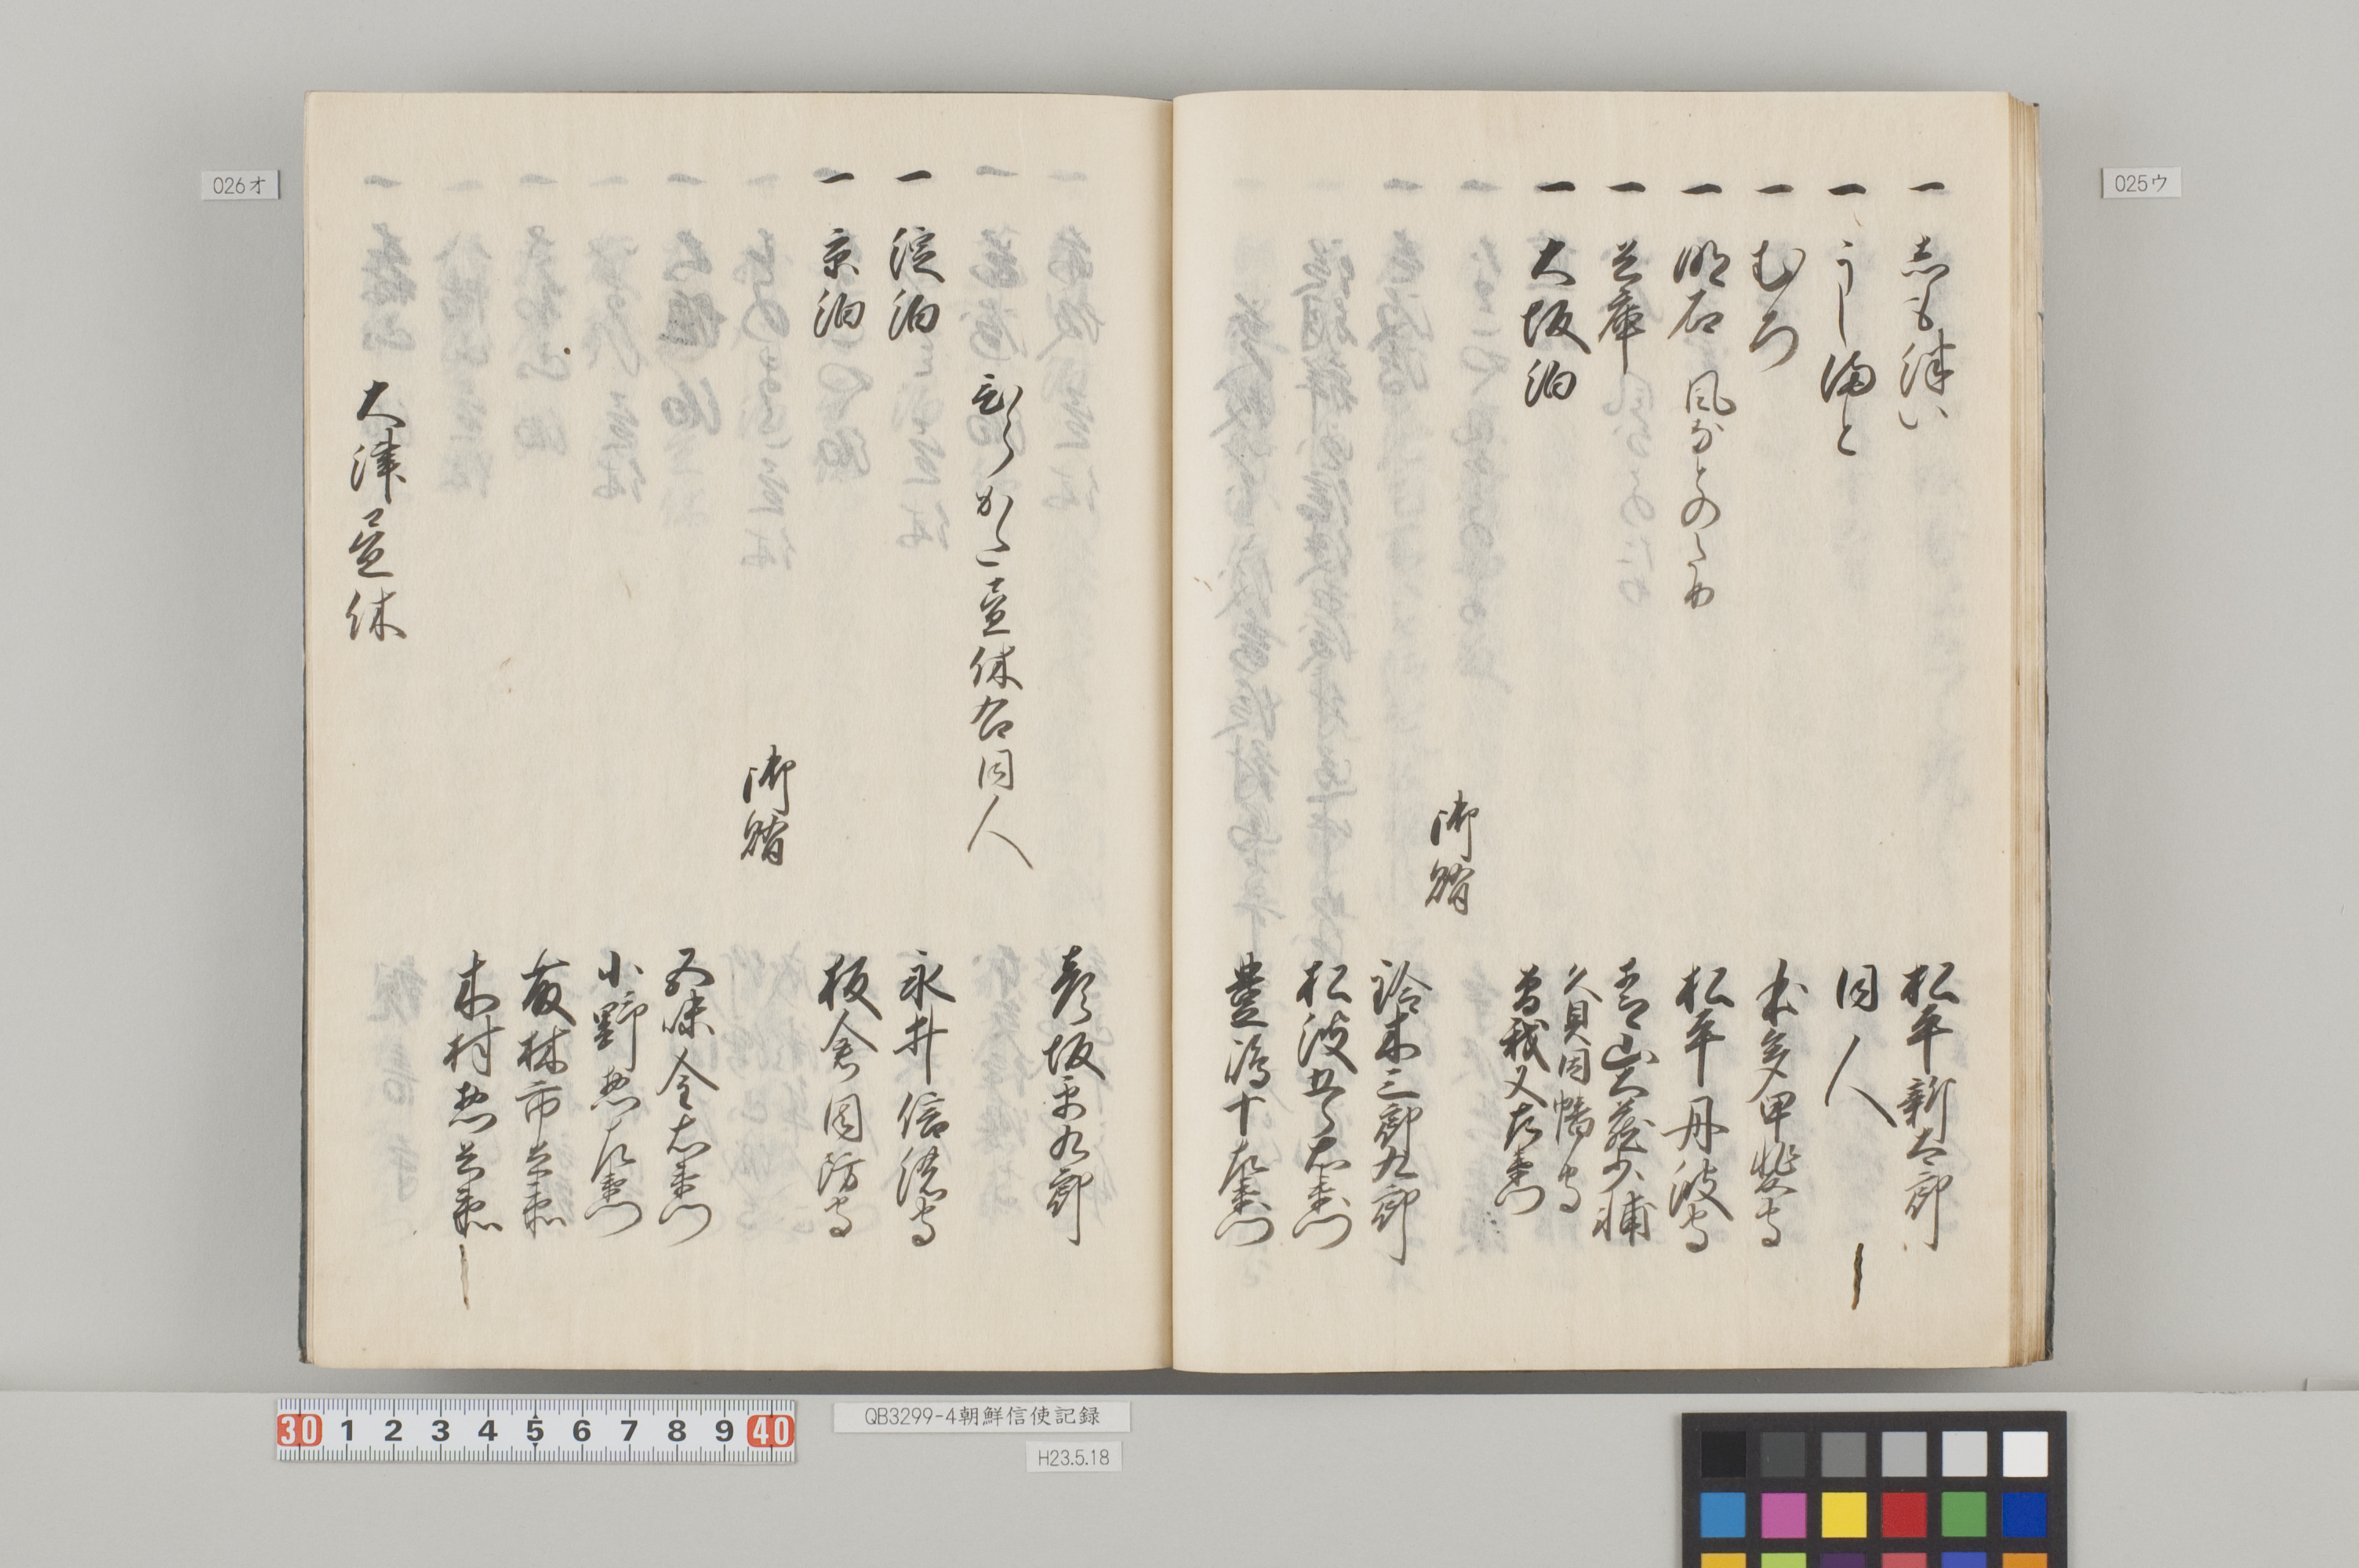 025ウ
一 志も津い 松平新太郎
一 うし満と 同人
一 むろ 本多甲斐守
一 明石 風なとのため 松平丹波守
一 兵庫 青山大蔵少輔
一 大坂泊 久貝因幡守
曽我又左衛門
御賄
鈴木三郎九郎
松波五郎右衛門
豊嶋十左衛門
彦坂平九郎
ひらかた壹休右同人
一 淀泊 永井信濃守
一 京泊 板倉周防守
御賄
五味金右衛門
小野惣左衛門
藤林市兵衛
木村惣兵衛
大津昼休
026オ
QB3299-4朝鮮信使記録
H23.5.18
30 1 2 3 4 5 6 7 8 9 40